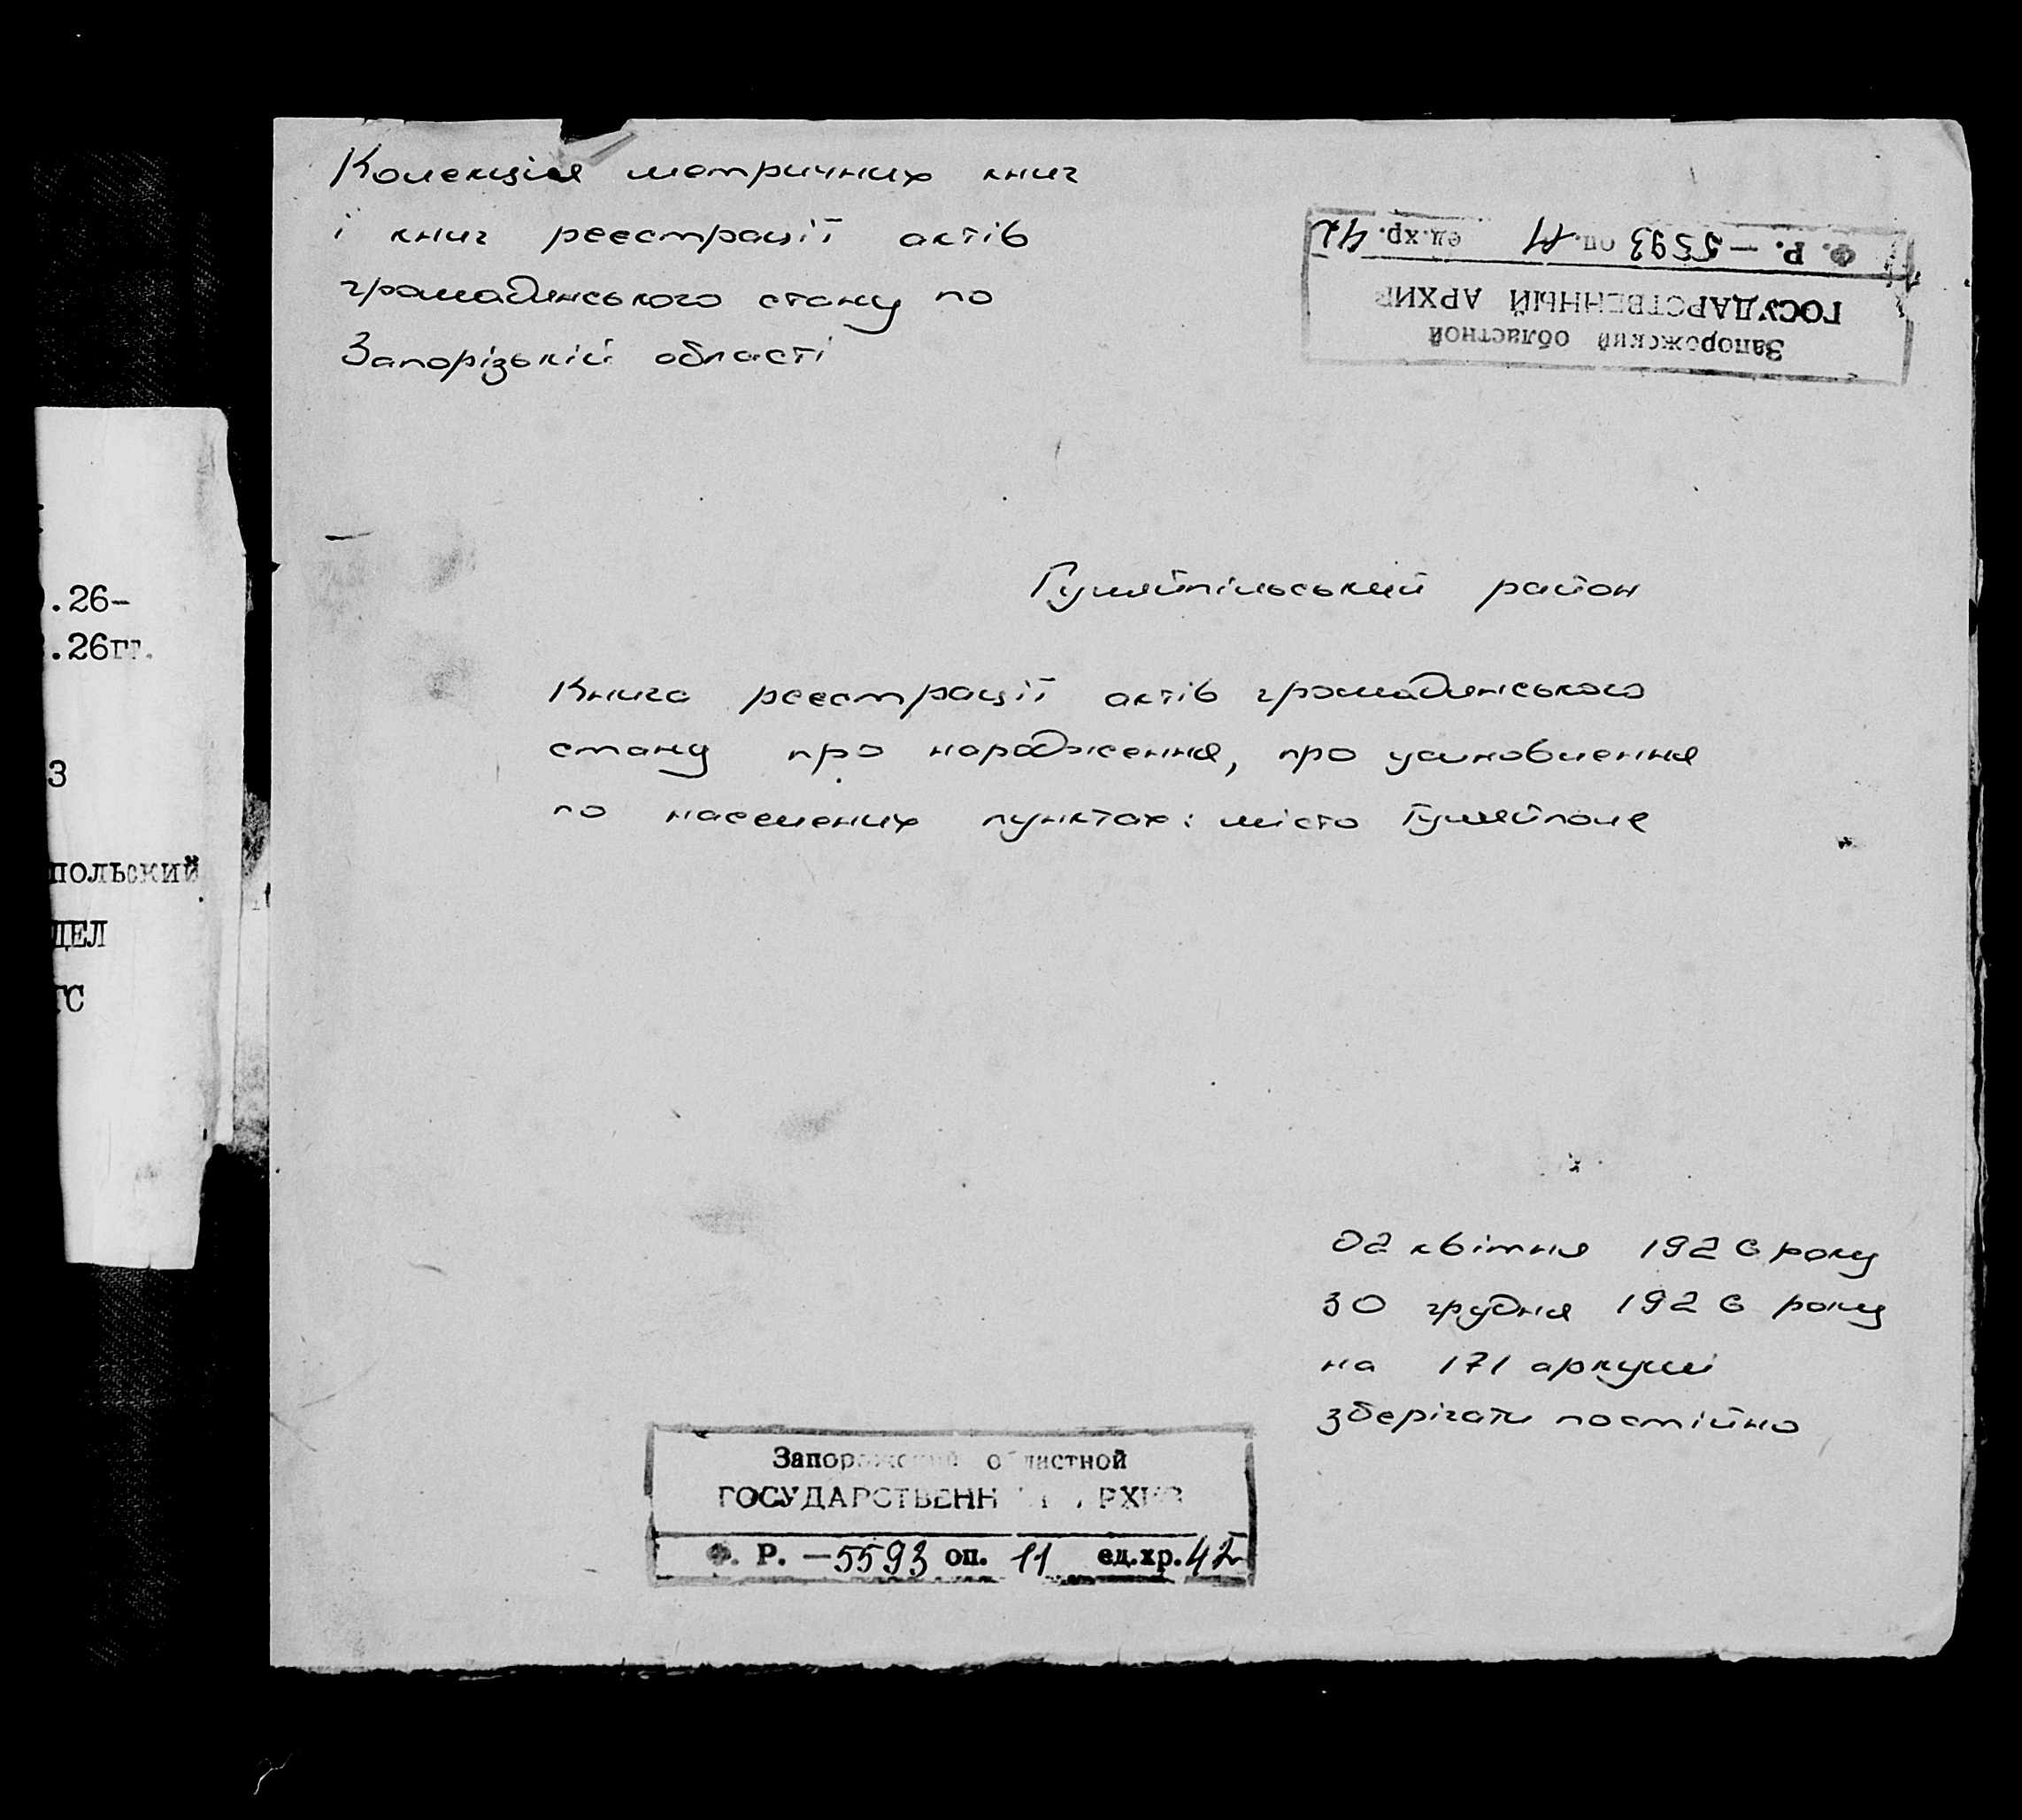 Колекція метричних книг
і книг реєстрації актів
громадянського стану по
Запорізькій області
Запорожский областной
ГОСУДАРСТВЕННЫЙ АРХИВ
Ф. Р. – 5593 оп. 11 ед.хр. 42
Гуляйпільський район
Книга реєстрації актів громадянського
стану про народження, про усиновлення
по населених пунктах: місто Гуляйполе
.26-
.26гг.
3
польский
ДЕЛ
ГС
02 квітня 1926 року
30 грудня 1926 року
на 171 аркуші
зберігати постійно
Запорожский областной
ГОСУДАРСТВЕННЫЙ АРХИВ
Ф. Р. – 5593 оп. 11 ед.хр. 42